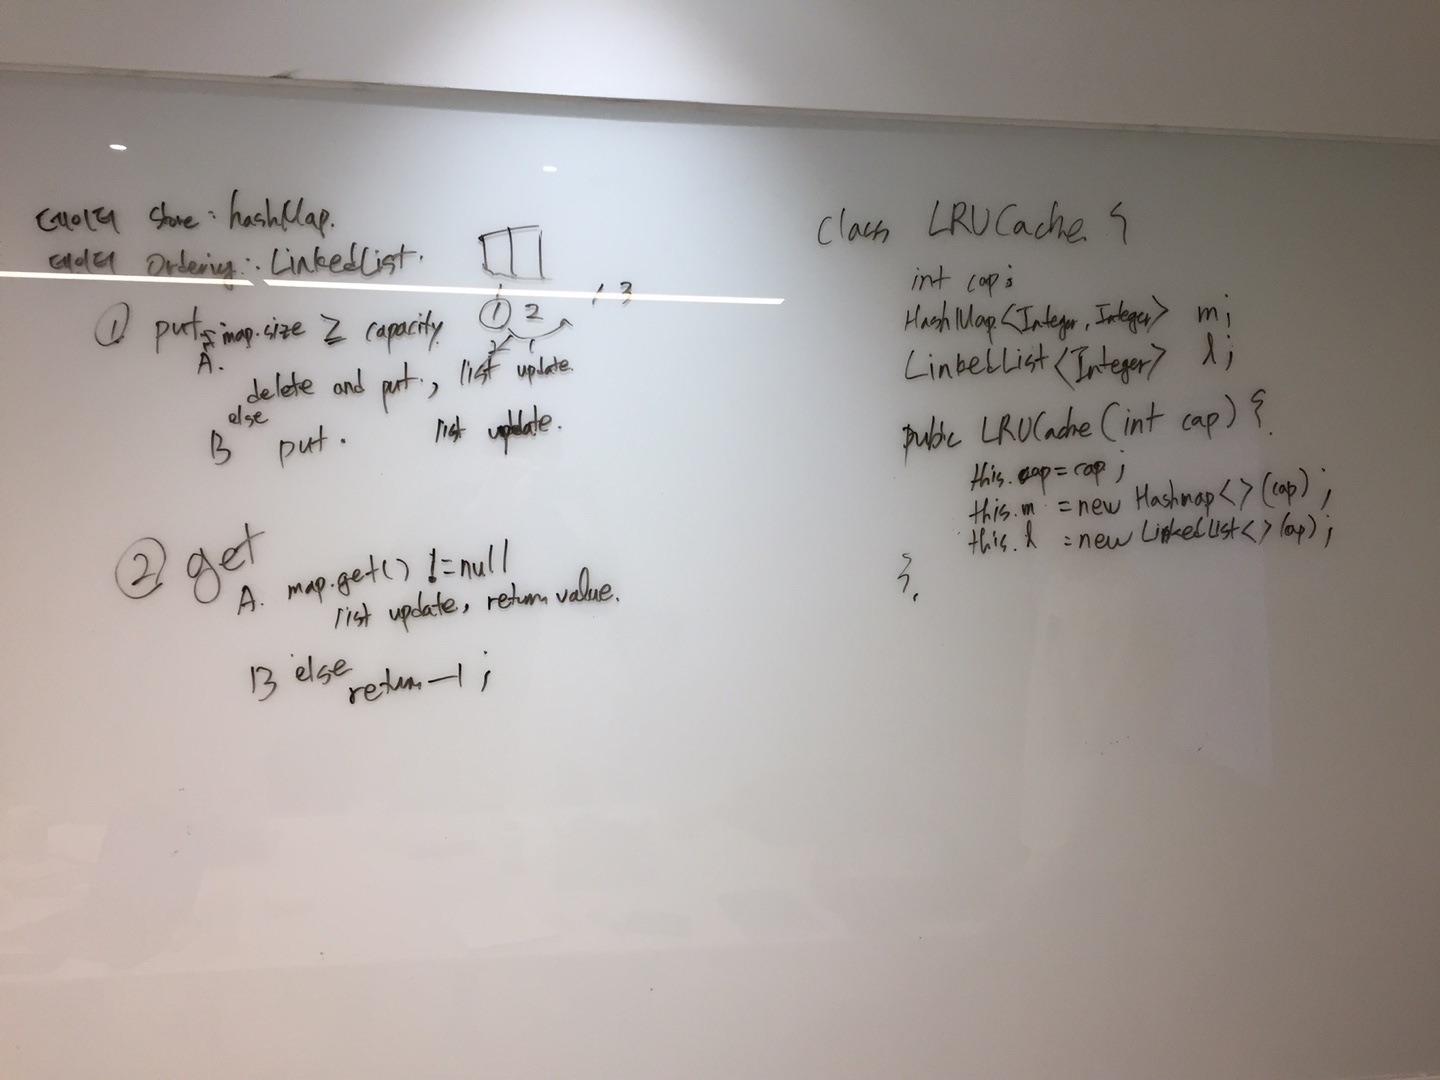 데이터 store : hashMap.
데이터 Ordering : LinkedList.
① put map.size ≥ capacity
A.
delete and put, list update.
else
B put. list update.
① 2
1 3
2 1
② get
A. map.get() != null
list update, return value.
B else
return -1 ;
class LRUCache {
int cap;
HashMap<Integer, Integer> m;
LinkedList<Integer> l;
public LRUCache (int cap) {
this.cap = cap ;
this.m = new Hashmap<> (cap) ;
this.l = new LinkedList<> (cap) ;
}